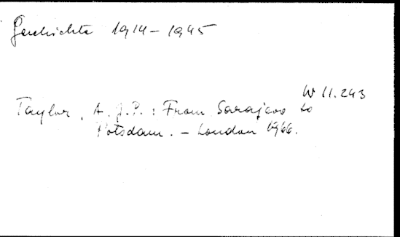 Geschichte 1914-1945
W 11.243
Taylor, A. J. P.: From Sarajevo to
Potsdam. - London 1966.